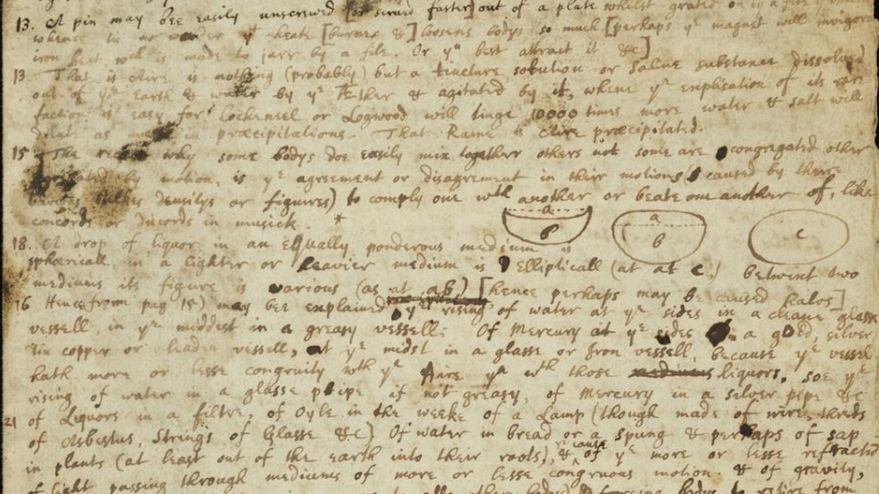 13. A pin may bee easily unscrewed [or scrued faster] out of a plate whilst grated on by a file
whence tis no wonder yt heate [burnes &] loosens bodys so much [perhaps ye magnet will invigorate
iron best wch is made to jarr by a file. Or ym best attract it &c]
13 That is Aire is nothing (probably) but a tincture solution or Saline substance dissolved
out of ye Earth & water by ye Æther & agitated by it, whence ye explication of its rare
faction is easy for Cochensel or Logwood will tinge 10000 times more water & salt will
dilat as much in præcipitations. That Raine is Aire præcipitated.
15 The reason why some bodys doe easily mix together others not some are congregated other
by motion, is ye agreement or disagreement in their motions (caused by there
densitys or figures) to comply one wth another or beate one another of, like
concords or discords in musick. *
a
b
a
b
c
18. A drop of liquor in an Equally ponderous medium is
sphæricall in a lighter or heavier medium is Ellipticall (at at c.) betwixt two
mediums its figure is various (as at ab) [hence perhaps may be caused halos]
16 Hence (from pag 15) may bee explained ye rising of water at ye sides in a cleane glasse
vessell, in ye middest in a greasy vessell: Of Mercury at ye sides in a gold, silver
tin copper or leaden vessell, at ye midst in a glasse or Iron vessell, because ye vessel
hath more or lesse congruity wth ye Aire yn wth those mediums liquors, soe ye
rising of water in a glasse pipe if not greasy, of Mercury in a silver pipe &c
21 of Liquors in a filtre, of Oyle in the weeke of a Lamp (though made of wire, threds
of Asbestus, strings of Glasse &c) Of water in bread or a spung & perhaps of sap
in plants (at least out of the earth into their roots), & cause of ye more or lesse refracted
of light passing through mediums of more or lesse congruous motion. & of gravity,